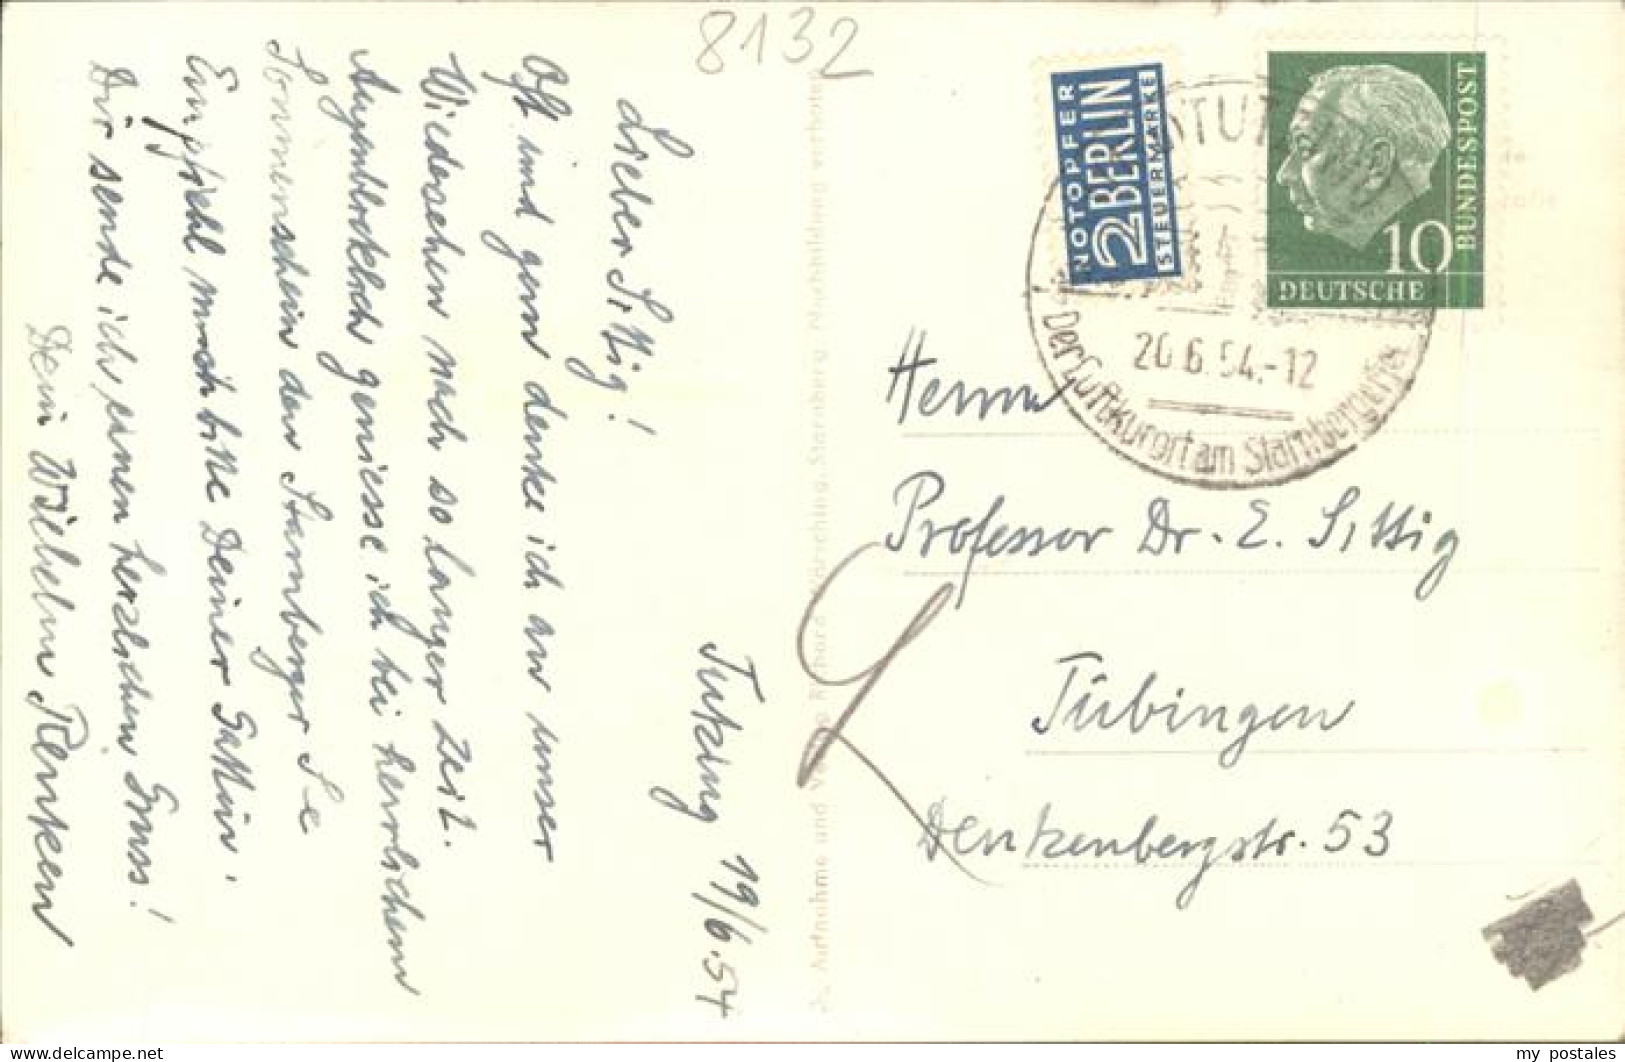 8132
Tutzing 19/6.54
Lieber Sittig!
Oft und gern denke ich an unser
Wiedersehen nach so langer Zeit.
Augenblicklich geniesse ich bei herrlichem
Sonnenschein den Starnberger See
Empfiehl mich bitte Deiner Gattin.
Dir sende ich einen herzlichen Gruss!
Dein Wilhelm Renken
Aufnahme und Verlag
Starnberg. Nachbildung verboten
NOTOPFER
2 BERLIN
STEUERMARKE
DEUTSCHE
BUNDESPOST
10
20.6.54.-12
Der Luftkurort am Starnberger See
Herrn
Professor Dr. E. Sittig
Tübingen
Denzenbergstr. 53
my postales